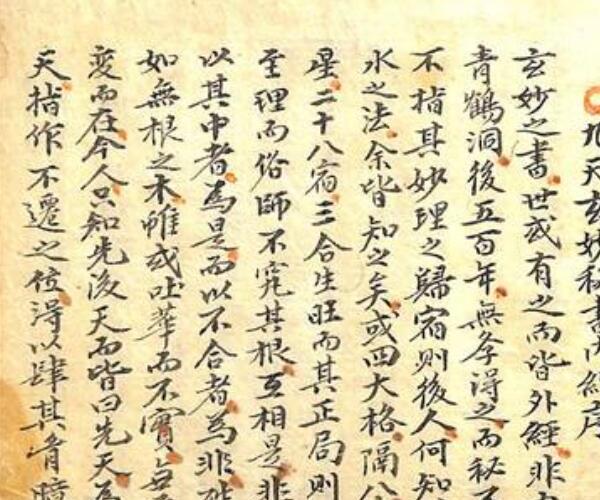 九天玄妙秘書內經序
玄妙之書世或有之而皆外經非
青鶴洞後五百年無厺得之而秘
不指其妙理之歸宿則後人何知
水之法余皆知之矣或四大格隔八
星二十八宿三合生旺而其正局則
至理而俗師不究其根互相是非
以其中者為是而以不合者為非
如無根之木唯或吐華而不實
変而在今人只知先後天而皆曰先天為
天指作不遷之位得以肆其